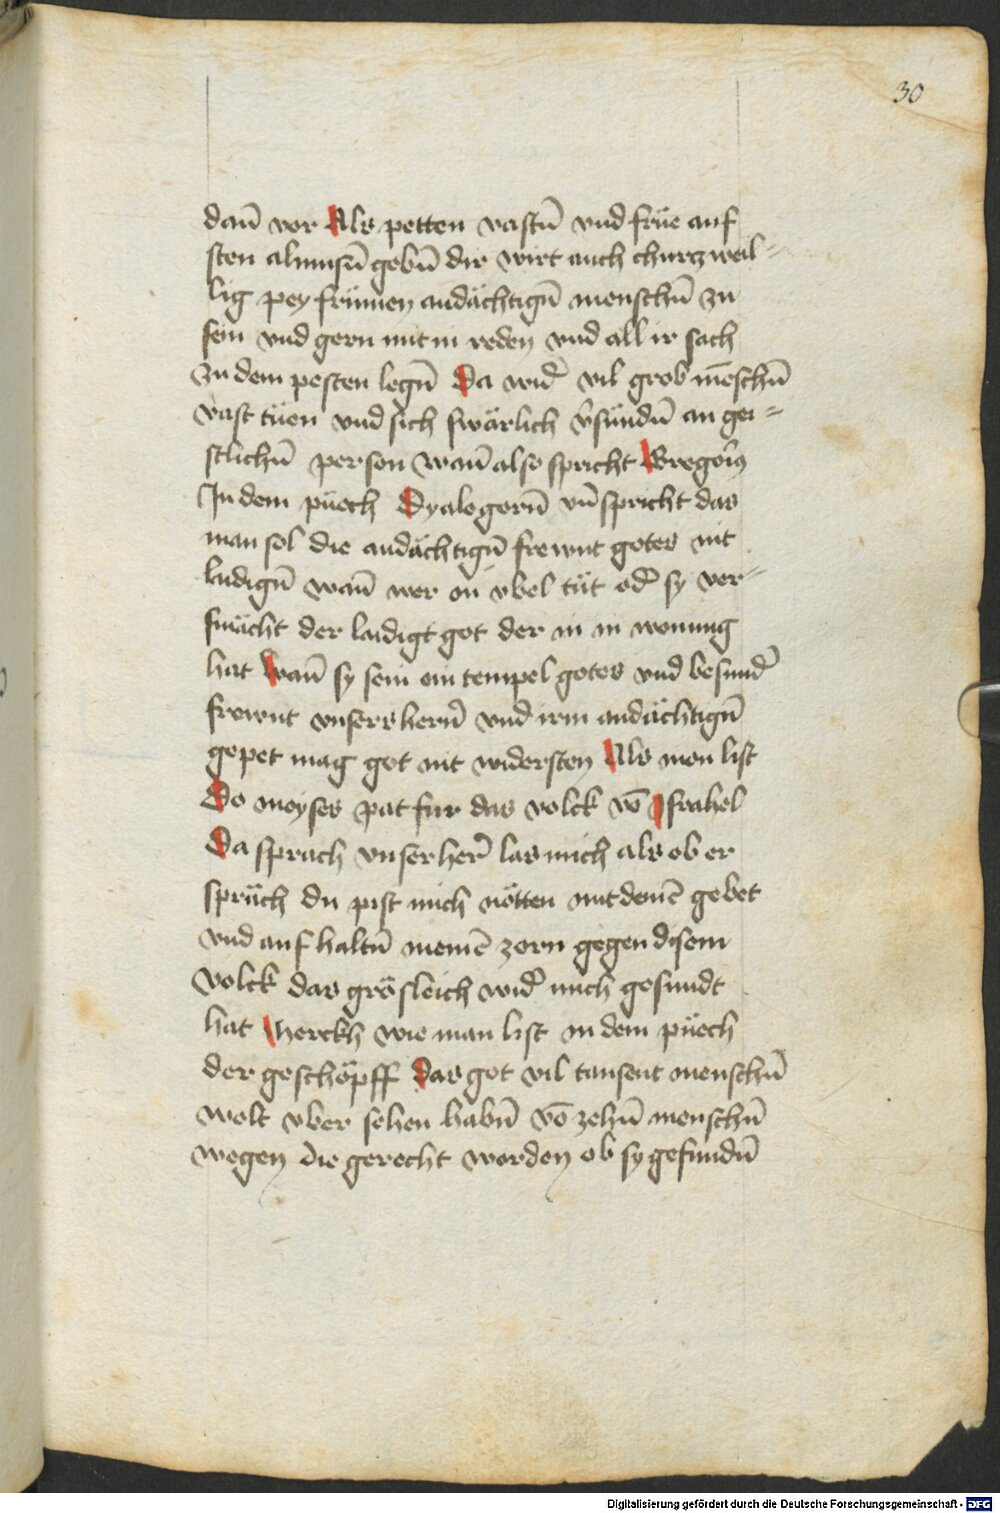 30
dañ vor Als petten vastn̄ vnd früe auf
sten almusn̄ gebn̄ dir wirt auch churczweil=
lig pey frümen andächtign̄ menschn̄ zu
sein vnd gern mit in reden vnd all ir sach
zu dem pesten legn̄ Da wid̾ vil grob mēschn̄
vast tüen vnd sich swärlich v̾sündn̄ an gei=
stlichn̄ person wañ also spricht Gregori9
In dem püech Dyalogorū vn̄ spricht das
man sol die andächtign̄ frewnt gotes nit
laidign̄ wañ wer in vbel tüt od̾ sy ver=
smächt der laidigt got der in in wonung
hat wañ sy sein ein tempel gotes vnd besund̾
frewnt vnsers hern̄ vnd irm andächtign̄
gepet mag got nit widersten Als man list
Do moyses pat fur das volck vō Israhel
Da sprach vnser her̄ las mich als ob er
spräch du pist mich nötten mit deinē gebet
vnd aufhaltn̄ meinē zorn gegen disem
volck das grösleich wid̾ mich gesundt
hat Merckh wie man list in dem püech
der geschöpff Das got vil tausent menschn̄
wolt vber sehen habn̄ vō zehn̄ menschn̄
wegen die gerecht worden ob sy gefundn̄
Digitalisierung gefördert durch die Deutsche Forschungsgemeinschaft - DFG